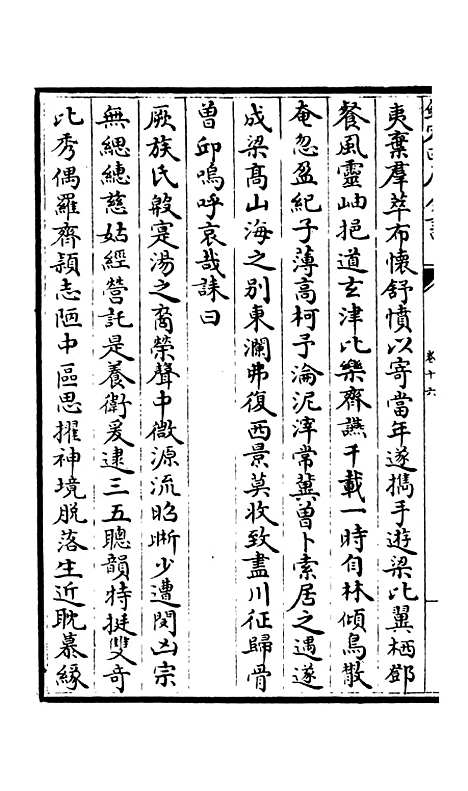 卷十六
夷棄羣萃布懷舒憤以寄當年遂攜手遊梁比翼栖鄧
餐風靈岫挹道玄津比樂齊讌千載一時自林傾鳥散
奄忽盈紀子薄高柯予淪泥滓常冀曾卜索居之遇遂
成梁髙山海之别東瀾弗復西景莫收致盡川征歸骨
曾邱嗚呼哀哉誄曰
厥族氏殷寔湯之裔榮聲中微源流昭晰少遭閔凶宗
無緦緦慈姑經營託是養衛爰逮三五聰韻特挺雙竒
比秀偶羅齊頴志陋中區思擢神境脱落生近耽慕緣